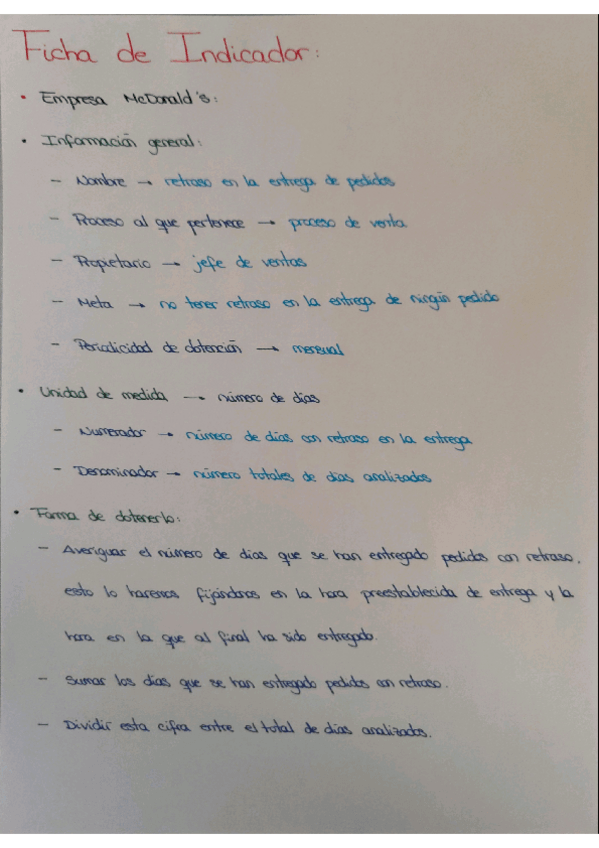 Ficha de Indicador:
• Empresa McDonald's:
• Información general:
- Nombre → retraso en la entrega de pedidos
- Proceso al que pertenece → proceso de venta
- Propietario → jefe de ventas
- Meta → no tener retraso en la entrega de ningún pedido
- Periodicidad de obtención → mensual
• Unidad de medida → número de días
- Numerador → número de días con retraso en la entrega
- Denominador → número totales de días analizados
• Forma de obtenerlo:
- Averiguar el número de días que se han entregado pedidos con retraso,
esto lo haremos fijándonos en la hora preestablecida de entrega y la
hora en la que al final ha sido entregado.
- Sumar los días que se han entregado pedidos con retraso.
- Dividir esta cifra entre el total de días analizados.